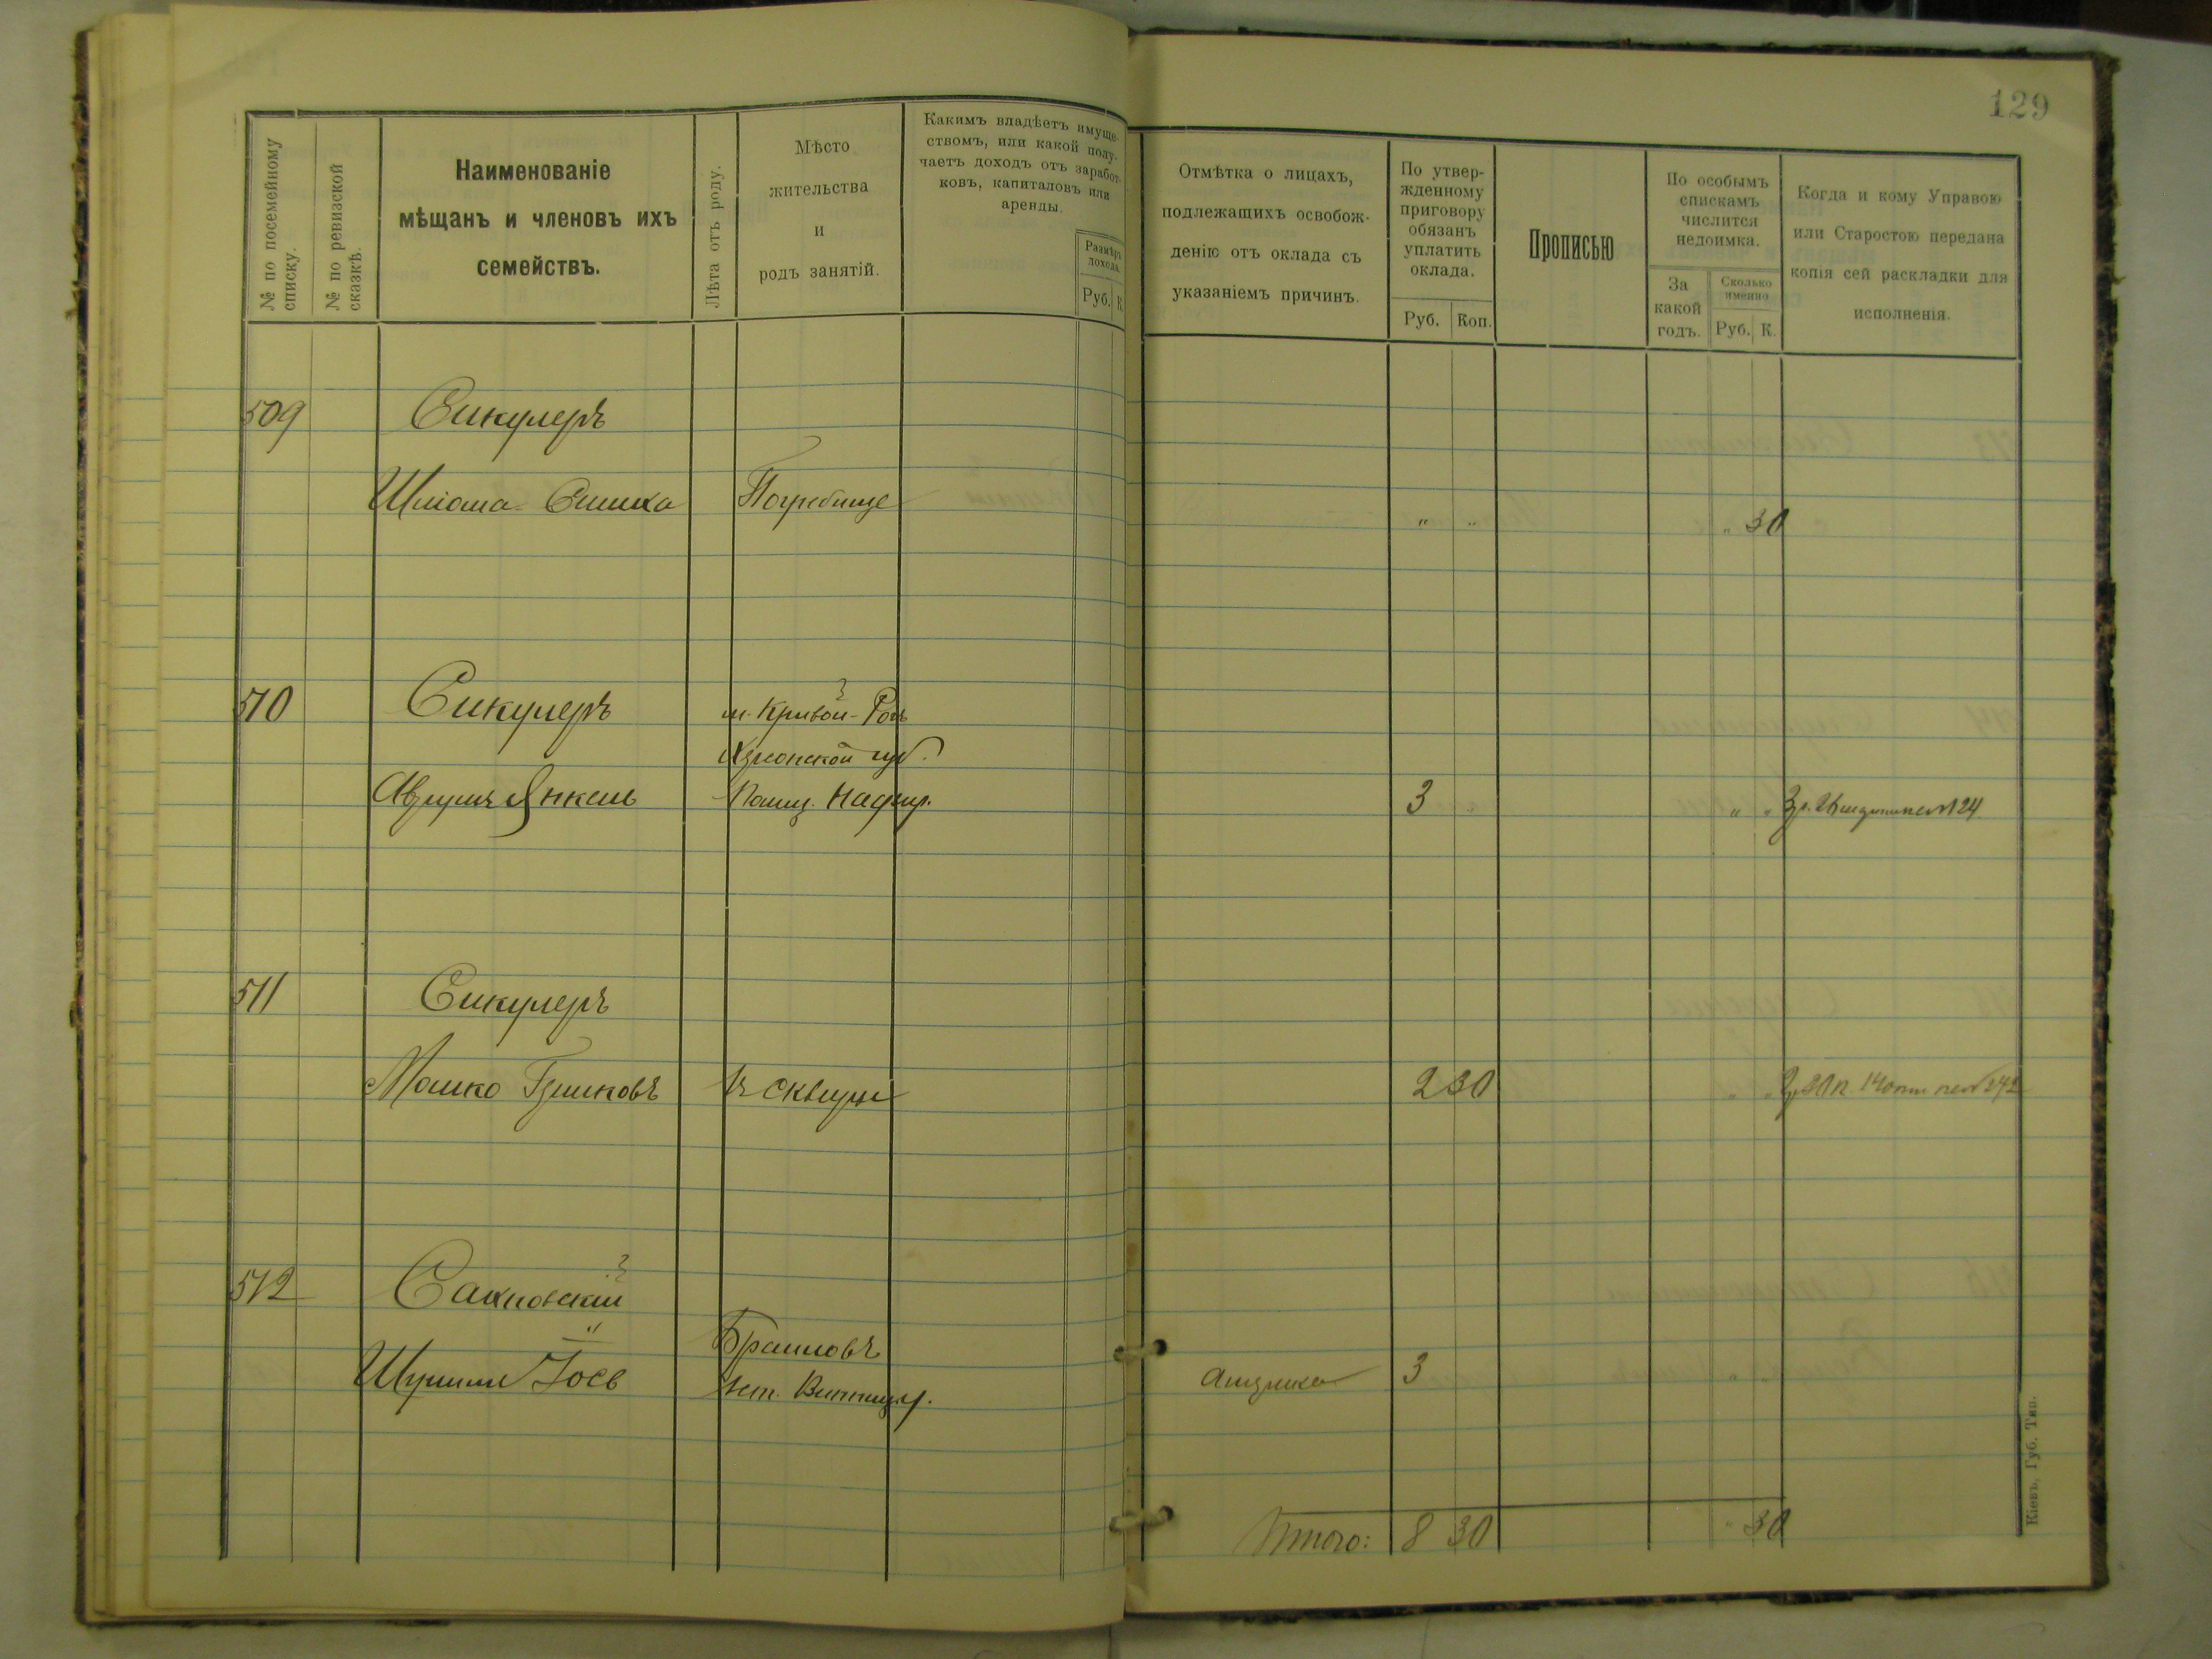 129
№ по посемейному списку.
№ по ревизской сказкѣ.
Наименованіе
мѣщанъ и членовъ ихъ
семействъ.
Лѣта отъ роду.
Мѣсто
жительства
и
родъ занятій.
Какимъ владѣетъ имуще-
ствомъ, или какой полу-
чаетъ доходъ отъ заработ-
ковъ, капиталовъ или
аренды.
Размѣръ
дохода.
Руб. К.
Отмѣтка о лицахъ,
подлежащихъ освобож-
денію отъ оклада съ
указаніемъ причинъ.
По утвер-
жденному
приговору
обязанъ
уплатить
оклада.
Руб. Коп.
Прописью
По особымъ
спискамъ
числится
недоимка.
За
какой
годъ.
Сколько
именно
Руб. К.
Когда и кому Управою
или Старостою передана
копія сей раскладки для
исполненія.
509 Сикулеръ
Шлiома Симха Погребище " " " 30
510 Сикулеръ м. Кривой-Рогъ
Херсонской губ.
Янкель 3 " " 3 р. 124
511 Сикулеръ
Мошко Гершковъ въ Сквирѣ 2 30 " " 2 р 30 к.
512 Сахновскій
Іосъ Браиловъ
Винниц. у. 3 " "
Итого: 8 30 " 30
Кіевъ, Губ. Тип.